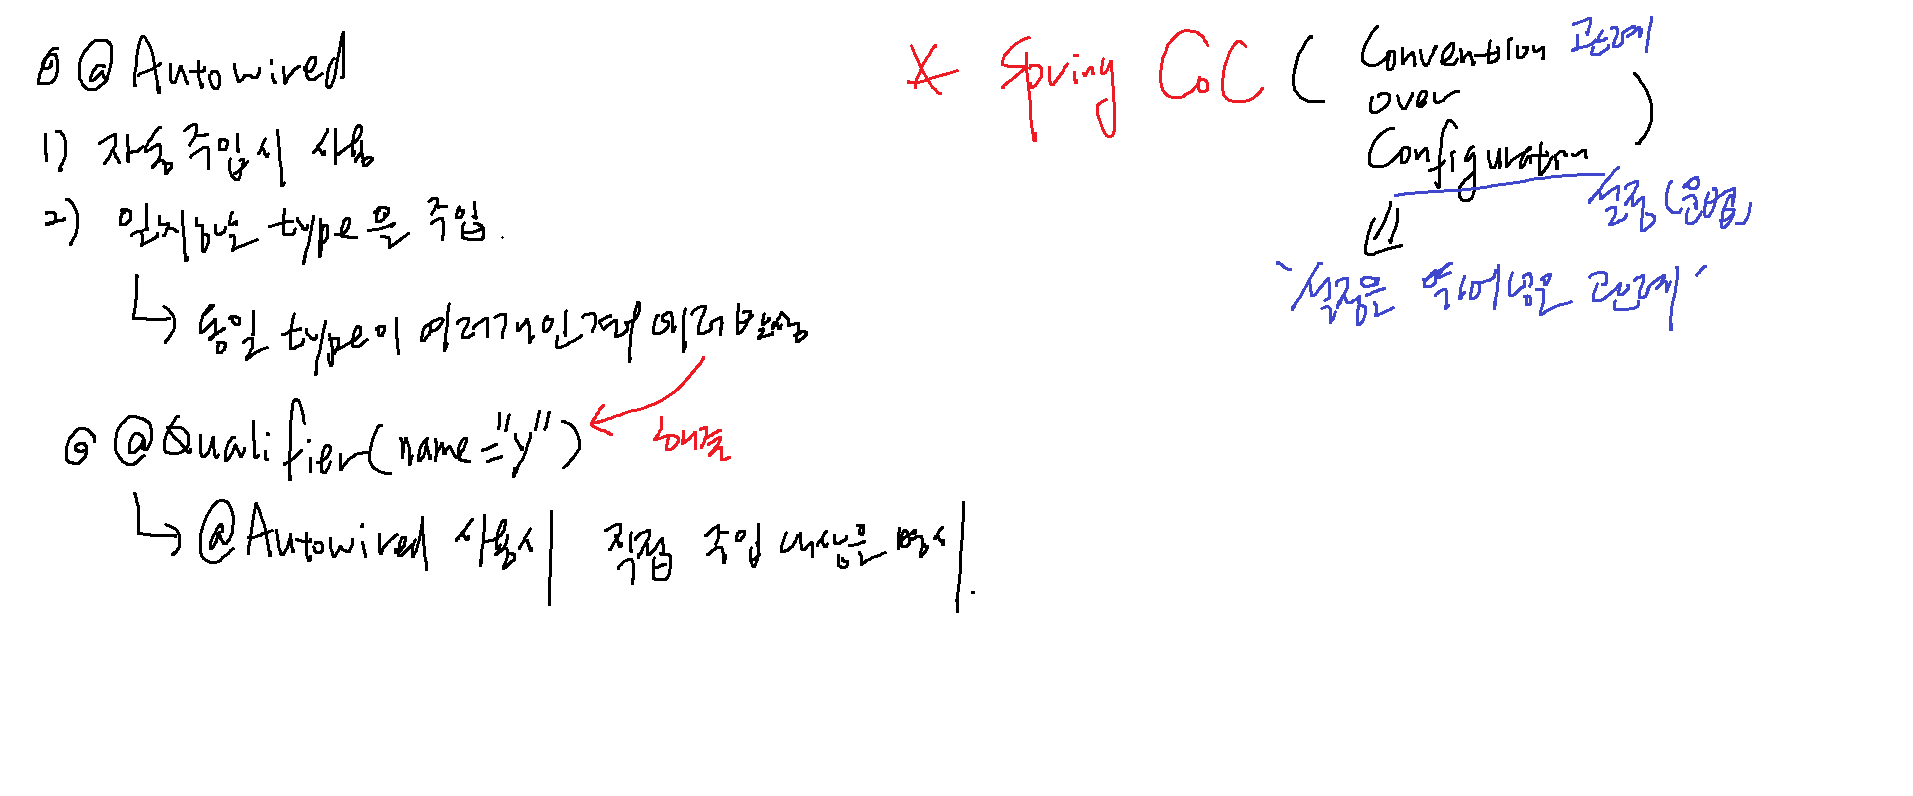 @Autowired
1) 자동주입시 사용
2) 일치하는 type을 주입.
동일 type이 여러개인경우 에러발생
해결
@Qualifier(name="y")
@Autowired 사용시 직접 주입 대상을 명시.
* Spring CoC (Convention 관례
over
Configuration)
설정(문법)
'설정을 뛰어넘은 관례'